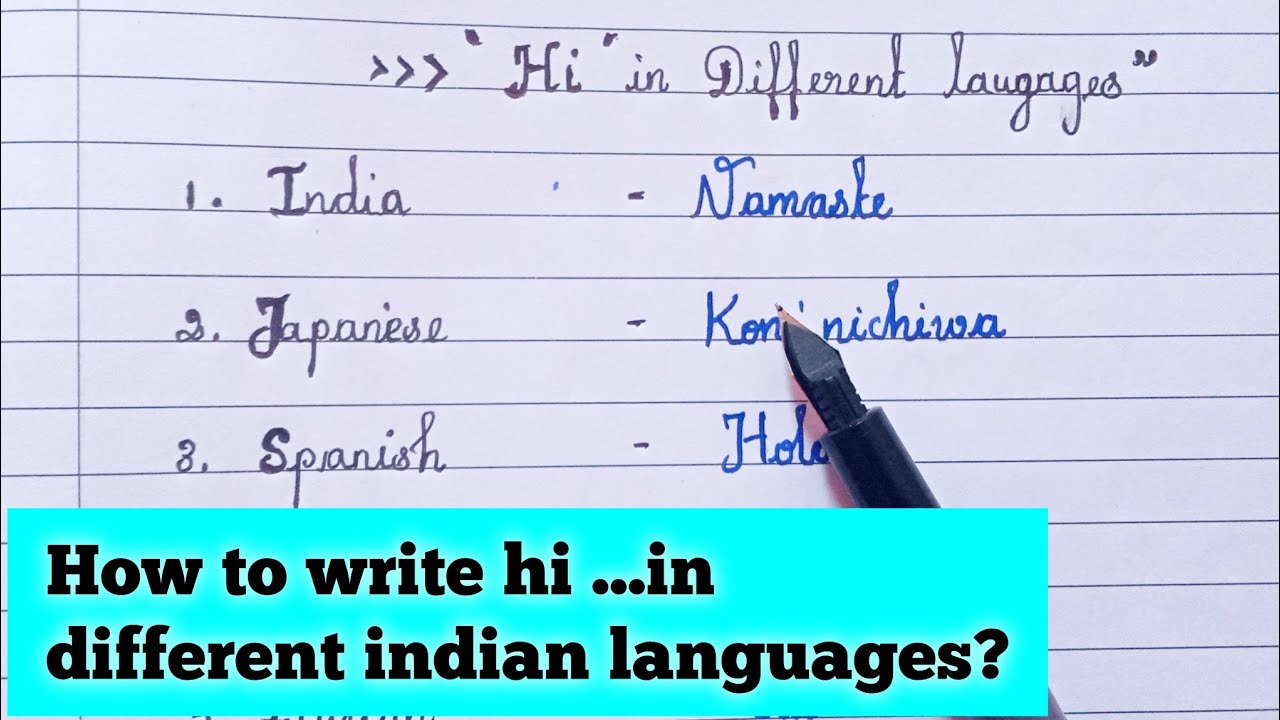 >>> "Hi" in Different laugages"
1. India - Namaste
2. Japanese - Kon'nichiwa
3. Spanish - Hola
How to write hi ...in
different indian languages?